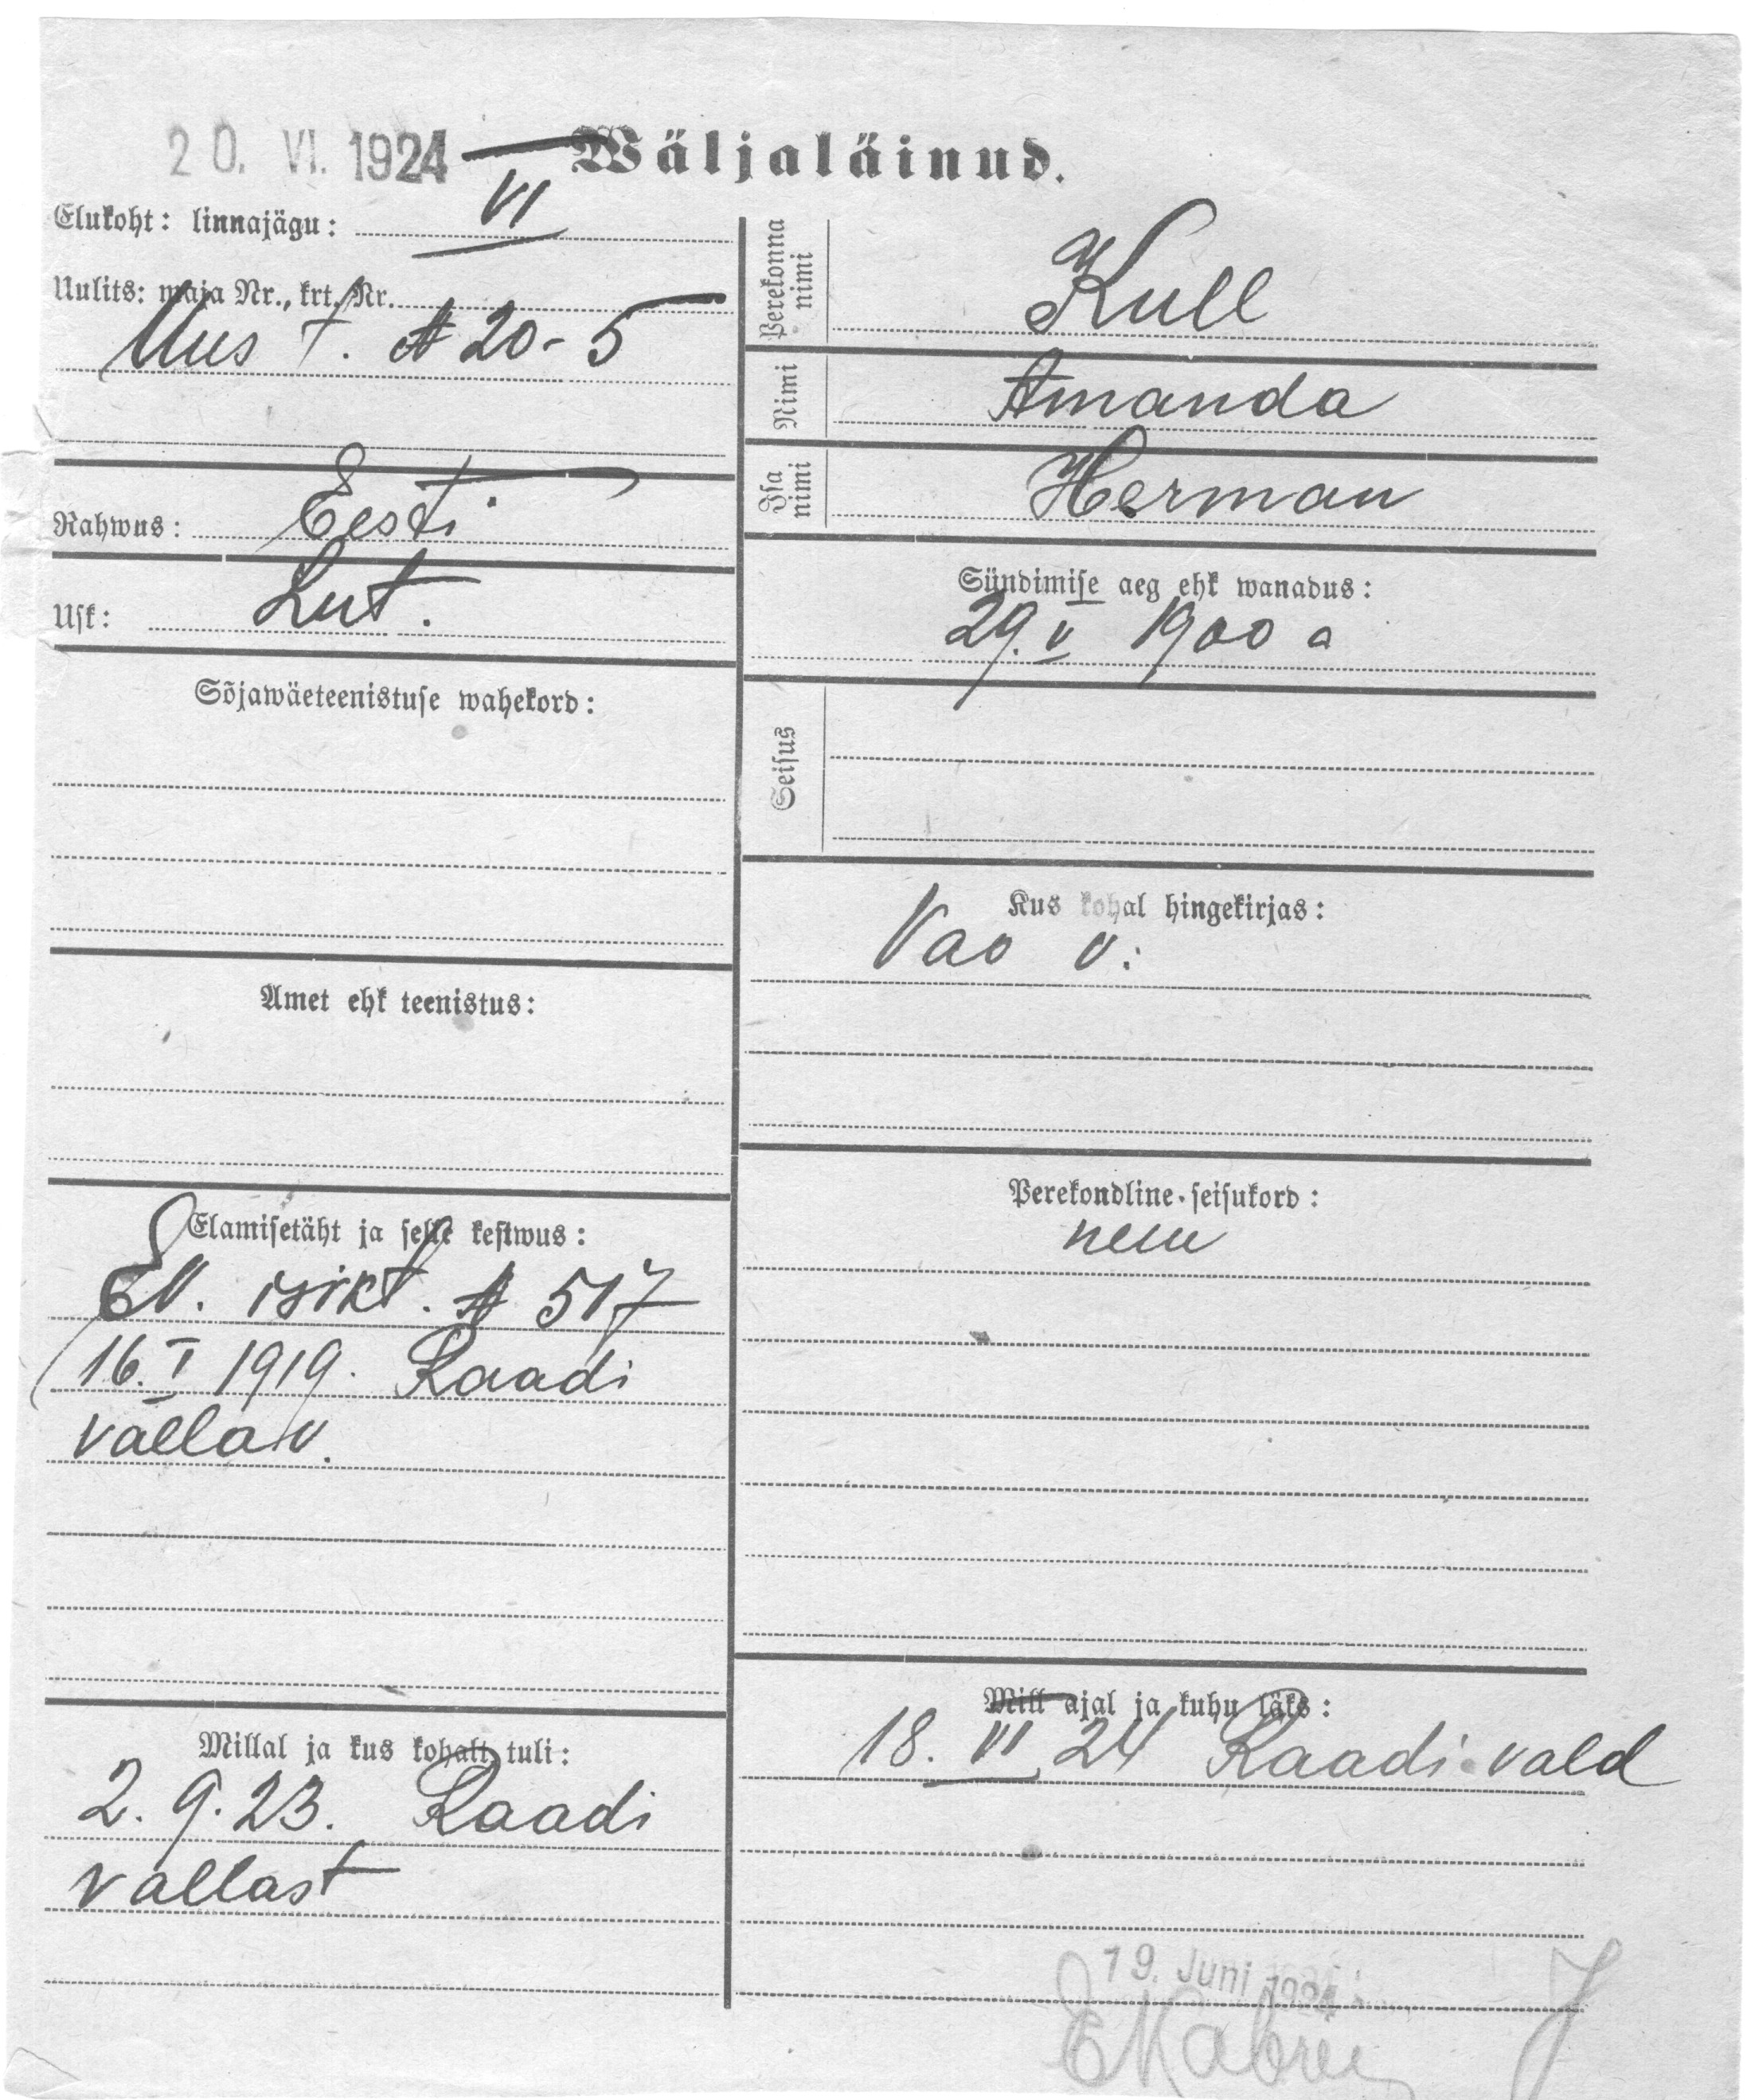 20. VI. 1924
Wäljaläinud.
Elukoht: linnajägu: VI
Uulits: maja Nr., krt. Nr.
Uus t. № 20-5
Rahwus: Eesti
Usk: Lut.
Sõjawäeteenistuse wahekord:
Amet ehk teenistus:
Elamisetäht ja selle kestwus:
EV. isikt. № 517
16. I 1919. Raadi
vallav.
Millal ja kus kohalt tuli:
2. 9. 23. Raadi
vallast
Perekonna nimi
Kull
Nimi
Amanda
Isa nimi
Herman
Sündimise aeg ehk wanadus:
29. V 1900 a
Seisus
Kus kohal hingekirjas:
Vao v.
Perekondline seisukord:
neiu
Mill ajal ja kuhu läks:
18. VI 24 Raadi vald
19. Juni 1924